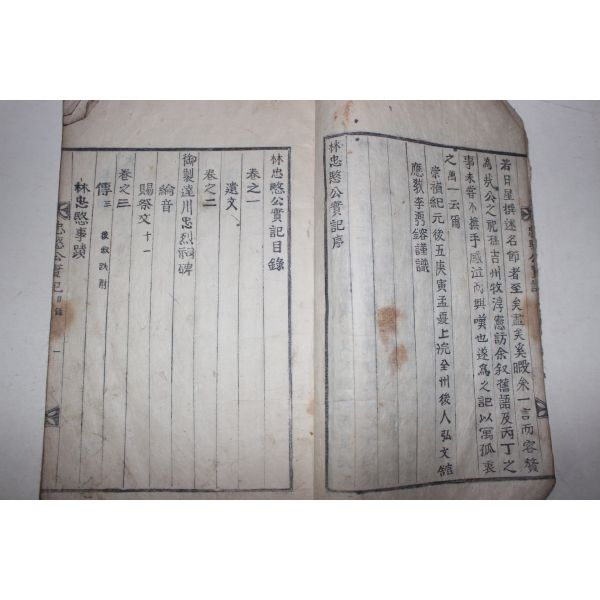 若日星撰述名節者至矣盡矣奚暇朱一言而容贅
為哉公之祀孫吉州牧淳憲訪余叙舊語及丙丁之
事未嘗不撫手感泣而興嘆也遂為之記以寓孤衷
之萬一云爾
崇禎紀元後五庚寅孟夏上浣全州後人弘文舘
應敎李勇鎔謹識
林忠愍公實記序
林忠愍公實記目錄
卷之一
遺文
卷之二
御製達川忠烈祠碑
綸音
賜祭文十一
卷之三
傳三
林忠愍事蹟
忠愍公實記 目錄 一